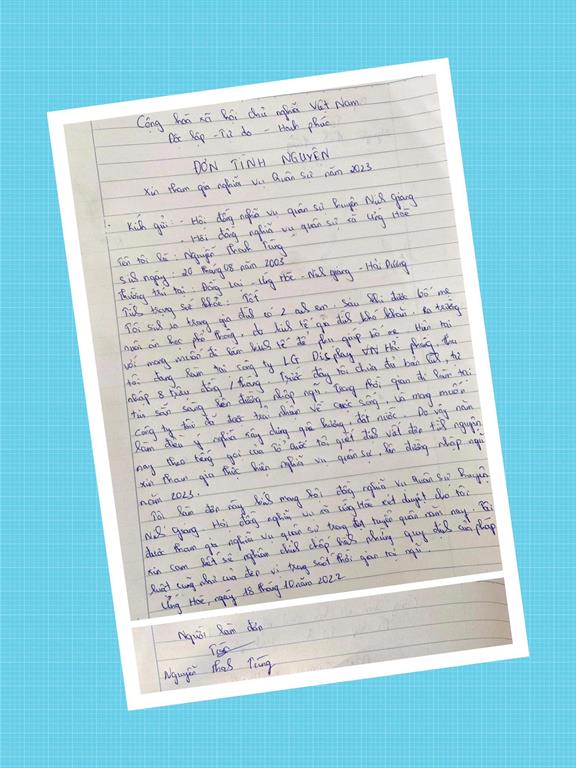 Cộng hoà xã hội chủ nghĩa Việt Nam
Độc lập - Tự do - Hạnh phúc
ĐƠN TÌNH NGUYỆN
Xin tham gia nghĩa vụ Quân sự năm 2023
Kính gửi: - Hội đồng nghĩa vụ quân sự huyện Ninh Giang
- Hội đồng nghĩa vụ quân sự xã Ứng Hoè
Tên tôi là: Nguyễn Thanh Tùng
Sinh ngày: 20 tháng 08 năm 2003
Thường trú tại: Đồng Lại - Ứng Hoè - Ninh giang - Hải Dương
Tình trạng sức khỏe: Tốt
Tôi sinh ra trong gia đình có 2 anh em. Sau khi được bố mẹ
nuôi ăn học phổ thông, do kinh tế gia đình khó khăn. Ra trường
với mong muốn đi làm kinh tế để phụ giúp bố mẹ. Hiện tại
tôi đang làm tại công ty LG Display VN Hải phòng thu
nhập 8 triệu đồng / tháng. Trước đây tôi chưa đủ bản lĩnh tự
tin sẵn sàng lên đường nhập ngũ. Trong thời gian đi làm tại
công ty tôi đã được trải nhiều về cuộc sống, và mong muốn
làm điều ý nghĩa xây dựng quê hương, đất nước. Do vậy năm
nay theo tiếng gọi của tổ quốc tôi quyết định viết đơn tình nguyện
xin tham gia thực hiện nghĩa vụ quân sự, lên đường nhập ngũ
năm 2023.
Tôi làm đơn này, kính mong hội đồng nghĩa vụ Quân sự huyện
Ninh Giang. Hội đồng nghĩa vụ xã Ứng Hoè xét duyệt cho tôi
được tham gia nghĩa vụ quân sự trong đợt tuyển quân năm nay. Tôi
xin cam kết sẽ nghiêm chỉnh chấp hành những quy định của pháp
luật cũng như của đơn vị trong suốt thời gian tại ngũ.
Ứng Hoè, ngày 18 tháng 10 năm 2022
Người làm đơn
Nguyễn Thanh Tùng